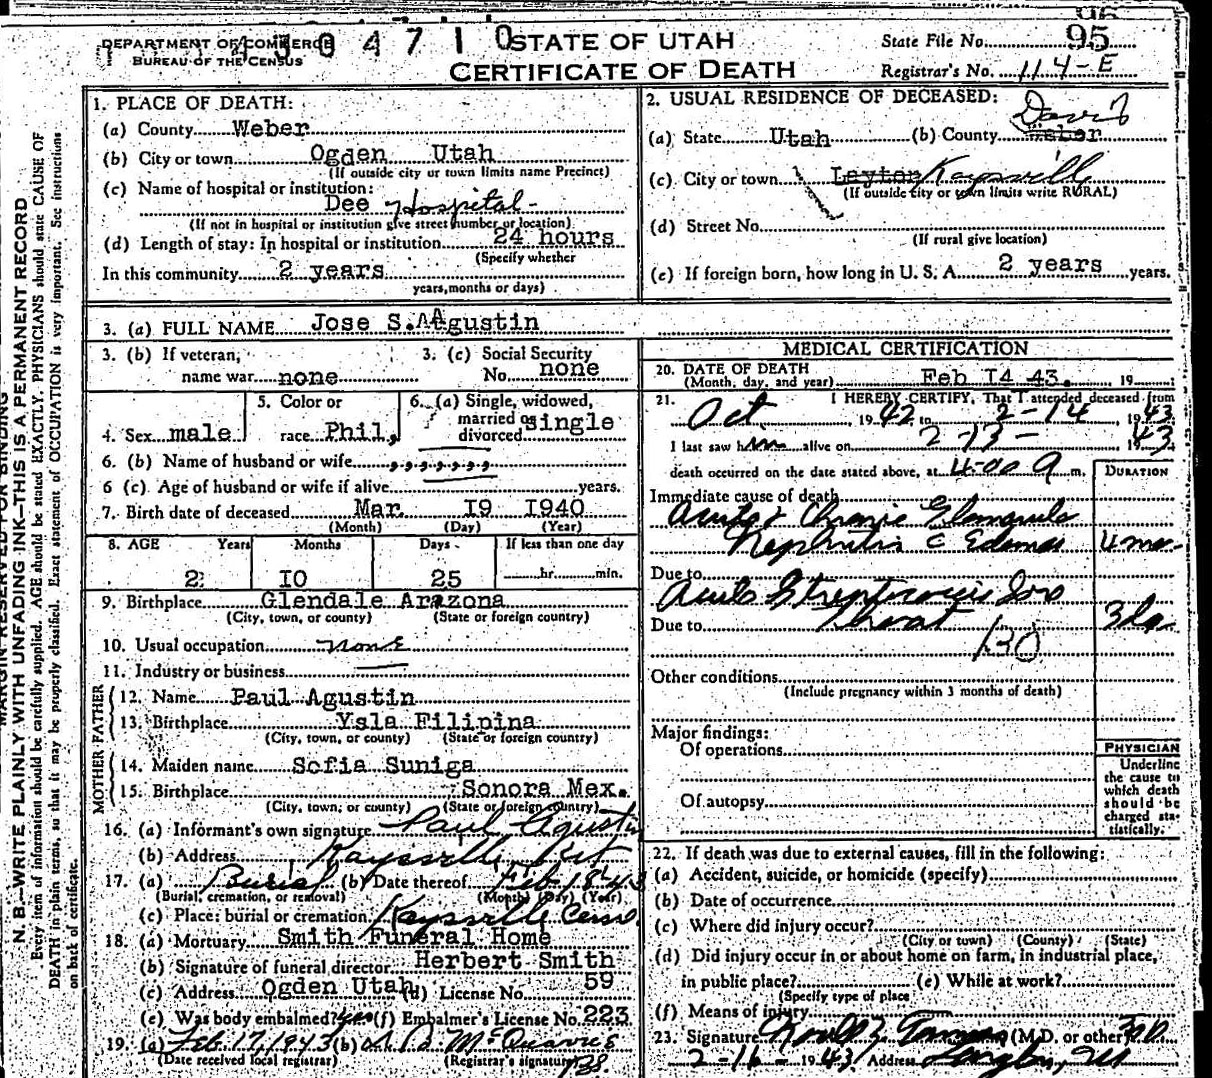 DEPARTMENT OF COMMERCE
BUREAU OF THE CENSUS
430471 0
STATE OF UTAH
CERTIFICATE OF DEATH
State File No. 95
Registrar's No. 114-E
N. B.—WRITE PLAINLY WITH UNFADING INK—THIS IS A PERMANENT RECORD
Every item of information should be carefully supplied. AGE should be stated EXACTLY. PHYSICIANS should state CAUSE OF
DEATH in plain terms, so that it may be properly classified. Exact statement of OCCUPATION is very important. See instructions
on back of certificate.
1. PLACE OF DEATH:
(a) County Weber
(b) City or town Ogden Utah
(If outside city or town limits name Precinct)
(c) Name of hospital or institution:
Dee Hospital
(If not in hospital or institution give street number or location)
(d) Length of stay: In hospital or institution 24 hours
(Specify whether
In this community 2 years
years, months or days)
2. USUAL RESIDENCE OF DECEASED:
Davis
(a) State Utah (b) County Weber
(c) City or town Layton Kaysvill
(If outside city or town limits write RURAL)
(d) Street No.
(If rural give location)
(e) If foreign born, how long in U. S. A. 2 years years.
3. (a) FULL NAME Jose S. Agustin
3. (b) If veteran, name war none
3. (c) Social Security No. none
4. Sex male
5. Color or race Phil,
6. (a) Single, widowed, married or divorced single
6. (b) Name of husband or wife ,,,,,,,
6 (c) Age of husband or wife if alive years.
7. Birth date of deceased Mar. I9 I940
(Month) (Day) (Year)
8. AGE Years Months Days If less than one day
2 I0 25 hr. min.
9. Birthplace Glendale Arazona
(City, town, or county) (State or foreign country)
10. Usual occupation none
11. Industry or business
FATHER
12. Name Paul Agustin
13. Birthplace Ysla Filipina
(City, town, or county) (State or foreign country)
MOTHER
14. Maiden name Sofia Suniga
15. Birthplace Sonora Mex.
(City, town, or county) (State or foreign country)
16. (a) Informant's own signature Paul Agustin
(b) Address Kaysville
17. (a) Burial (b) Date thereof Feb-18-43
(Burial, cremation, or removal) (Month) (Day) (Year)
(c) Place: burial or cremation Kaysville Cem
18. (a) Mortuary Smith Funeral Home
(b) Signature of funeral director Herbert Smith
(c) Address Ogden Utah (d) License No. 59
(e) Was body embalmed? yes (f) Embalmer's License No. 223
19. (a) Feb. 17, 1943 (b)
(Date received local registrar) (Registrar's signature)
MEDICAL CERTIFICATION
20. DATE OF DEATH
(Month, day, and year) Feb I4 43. 19
21. I HEREBY CERTIFY, That I attended deceased from
Oct. 1942 to 2-14 1943
I last saw him alive on 2-13- 1943
death occurred on the date stated above, at 4:00 a m.
DURATION
Immediate cause of death
Acute & Chronic Glomerulo
Nephritis c Edema 4 mo-
Due to
Acute Streptococcis Sore
Due to Throat 3 da
130
Other conditions
(Include pregnancy within 3 months of death)
Major findings:
Of operations
Of autopsy
PHYSICIAN
Underline
the cause to
which death
should be
charged sta-
tistically.
22. If death was due to external causes, fill in the following:
(a) Accident, suicide, or homicide (specify)
(b) Date of occurrence
(c) Where did injury occur?
(City or town) (County) (State)
(d) Did injury occur in or about home on farm, in industrial place,
in public place? (e) While at work?
(Specify type of place
(f) Means of injury
23. Signature (M.D. or other)
2-16-1943 Address